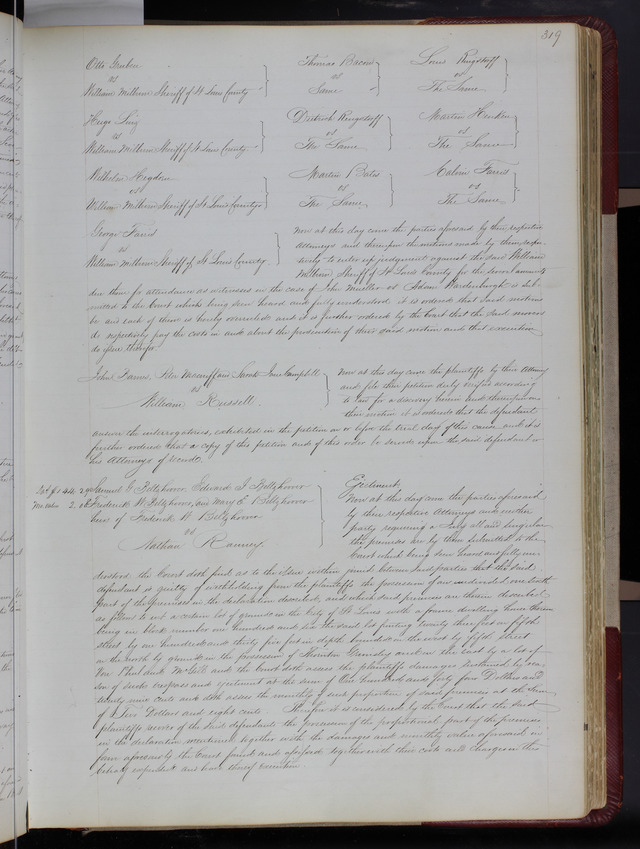 319
Otto Gruber
vs
William Milburn Sheriff of St Louis County
Thomas Bacon
vs
Same
Louis Ringstoff
vs
The Same
Hugo
vs
William Milburn Sheriff of St Louis County
Dietrich Ringstoff
vs
The Same
Martin
vs
The Same
Wilhelm Hegdon
vs
William Milburn Sheriff of St. Louis County
Martin Bates
vs
The Same
Calvin Farris
vs
The Same
George Farris
vs
William Milburn Sheriff of St Louis County
Now at this day came the parties aforesaid by their respective
Attorneys and thereupon the motions made by them respec-
tively to enter up judgement against the said William
Milburn Sheriff of St Louis County for the several amounts
due them for attendance as witnesses in the case of John Mueller vs Adam is sub-
mitted to the Court which being seen heard and fully understood it is ordered that said motions
be and each of them is hereby overruled and it is further ordered by the Court that the said movers
do respectively pay the costs in and about the prosecution of their said motion and that execution
do issue therefor
John Barns, Peter and Sarah Jane Campbell
vs
William Russell
Now at this day came the plaintiffs by their attorney
and file their petition duly verified according
to law for a discovery herein and thereupon on
their motion it is ordered that the defendant
answer the interrogatories exhibited in the petition on or before the trial day of this cause and it is
further ordered that a copy of this petition and of this order be served upon the said defendant or
his Attorneys of record.
Samuel G Beltzhoover, Edward J Beltzhoover
Frederick W Beltzhoover, and Mary E Beltzhoover
heirs of Frederick W Beltzhoover
vs
Nathan Ranney
Ejectment,
Now at this day came the parties aforesaid
by their respective Attorneys and neither
party requiring a Jury all and singular
the premises are by them submitted to the
Court which being seen heard and fully un-
derstood the Court doth find as to the Issue within joined between said parties that the said
defendant is guilty of withholding from the plaintiffs the possession of an undivided one tenth
part of the premises in the declaration described, and which said premises are therein described
as follows to wit a certain lot of ground in the City of St Louis with a frame dwelling house thereon
being in block number one hundred and six the said lot fronting twenty three feet on fifth
street by one hundred and thirty five feet in depth bounded on the west by fifth street
on the north by ground in the possession of Thornton Grimsley and on the east by a lot of
Mc Gill and the Court doth assess the plaintiffs damages sustained by rea-
son of such trespass and ejectment at the sum of One hundred and forty four Dollars and
twenty nine cents and doth assess the monthly of said proportion of said premises at the sum
of Two Dollars and eight cents. Therefore it is considered by the Court that the said
plaintiffs recover of the said defendant the possession of the proportional part of the premises
in the declaration mentioned together with the damages and monthly value aforesaid in
form aforesaid by the Court found and assessed together with their costs and charges in this
behalf expended and have thereof execution